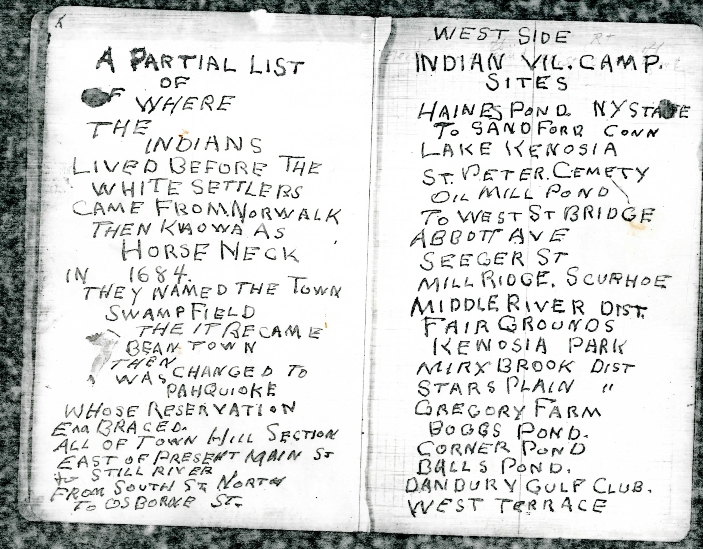 A PARTIAL LIST
OF
OF WHERE
THE
INDIANS
LIVED BEFORE THE
WHITE SETTLERS
CAME FROM NORWALK
THEN KNOWA AS
HORSE NECK
IN 1684.
THEY NAMED THE TOWN
SWAMPFIELD
THE IT BECAME
BEAN TOWN
THEN
WAS CHANGED TO
PAHQUIOKE
WHOSE RESERVATION
EMBRACED.
ALL OF TOWN HILL SECTION
EAST OF PRESENT MAIN ST
STILL RIVER
FROM SOUTH ST NORTH
TO OSBORNE ST.
WEST SIDE
INDIAN VIL. CAMP.
SITES
HAINES POND. NY STATE
TO SANDFORD CONN
LAKE KENOSIA
ST. PETER. CEMETY
OIL MILL POND
TO WEST ST BRIDGE
ABBOTT AVE
SEEGER ST
MILL RIDGE. SCURHOE
MIDDLE RIVER DIST.
FAIR GROUNDS
KENOSIA PARK
MIRY BROOK DIST
STARS PLAIN "
GREGORY FARM
BOGGS POND.
CORNER POND
BALLS POND.
DANBURY GULF CLUB.
WEST TERRACE